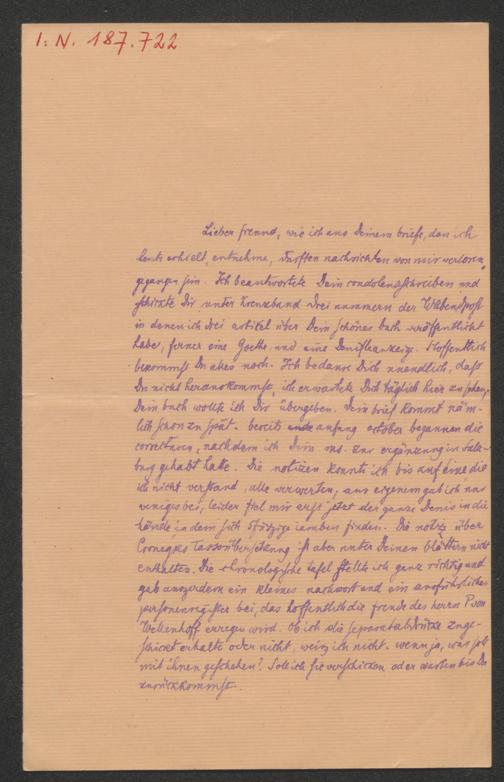 I. N. 187.722
Lieber freund, wie ich aus Deinem briefe, den ich
heute erhielt, entnehme, dürften nachrichten von mir verloren
gegangen sein. Ich beantwortete Dein condolenzschreiben und
schickte Dir unter Kreuzband drei nummern der W Abendpost
in denen ich drei artikel über Dein schönes buch veröffentlicht
habe, ferner eine Goethe- und eine Denisanzeige. Hoffentlich
bekommst Du alles noch. Ich bedaure Dich unendlich, daß
Du nicht herauskommst, ich erwartete Dich täglich hier zu sehen,
Dein buch wollte ich Dir übergeben. Dein brief kommt näm-
lich schon zu spät. bereits anfang october begannen die
correcturen, nachdem ich Dein ms. zur ergänzung in Salz-
burg gehabt hatte. Die notizen konnte ich bis auf eine die
ich nicht verstand, alle verwerten, aus eigenem gab ich nur
weniges bei, leider fiel mir erst jetzt der ganze Denis in die
hände, in dem sich 8füszige iamben finden. Die notiz über
Cronegks Tassoübersetzung ist aber unter Deinen blättern nicht
enthalten. Die chronologische tafel stellte ich ganz richtig und
gab auszerdem ein kleines nachwort und ein ausführliches
personenregister bei, das hoffentlich die freude des herrn P von
Weilenhoff erregen wird. Ob ich die separatabdrücke zuge-
schickt erhalte oder nicht, weisz ich nicht. wenn ja, was soll
mit ihnen geschehen? Soll ich sie verschicken oder warten bis Du
zurückkommst.